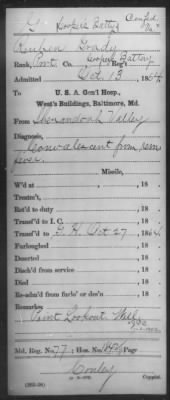 G Hooper's Battery Confed.
Reuben Grady
Rank, Pvt. Co. Hooper's Battery Reg't
Admitted Oct. 13, 1864
To
U. S. A. Gen'l Hosp.,
West's Buildings, Baltimore, Md.
From Shenandoah Valley
Diagnosis,
Convalescent from
Missile,
W'd at , 18
Treatm't,
Ret'd to duty , 18
Transf'd to I. C. , 18
Transf'd to G. H. Oct 27, 1864
Furloughed , 18
Deserted , 18
Disch'd from service , 18
Died , 18
Re-adm'd from furlo' or des'n , 18
Remarks:
Point Lookout Md.
Md. Reg. No. 77; Hos. No. Page
Conley
Copyist.